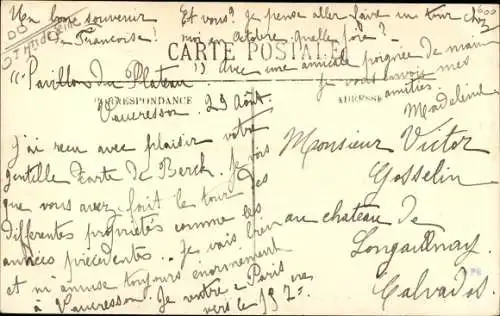 Un bon souvenir
de Françoise!
Et vous? Je pense aller faire un tour chez
moi en Octobre, quelle joie? -
CARTE POSTALE
avec une amicale poignée de main
je vous envois mes
amitiés.
Madeleine
"Pavillon du Plateau"
CORRESPONDANCE
ADRESSE
Vaucresson. 29 Août.
J'ai reçu avec plaisir votre
gentille carte de Berck. Je vois
que vous avez fait le tour des
différentes propriétés comme les
années précédentes. Je vais bien
et m'amuse toujours énormément
à Vaucresson. Je rentre à Paris
vers le 15
Monsieur Victor
Gosselin
au chateau de
Longaulnay
Calvados.